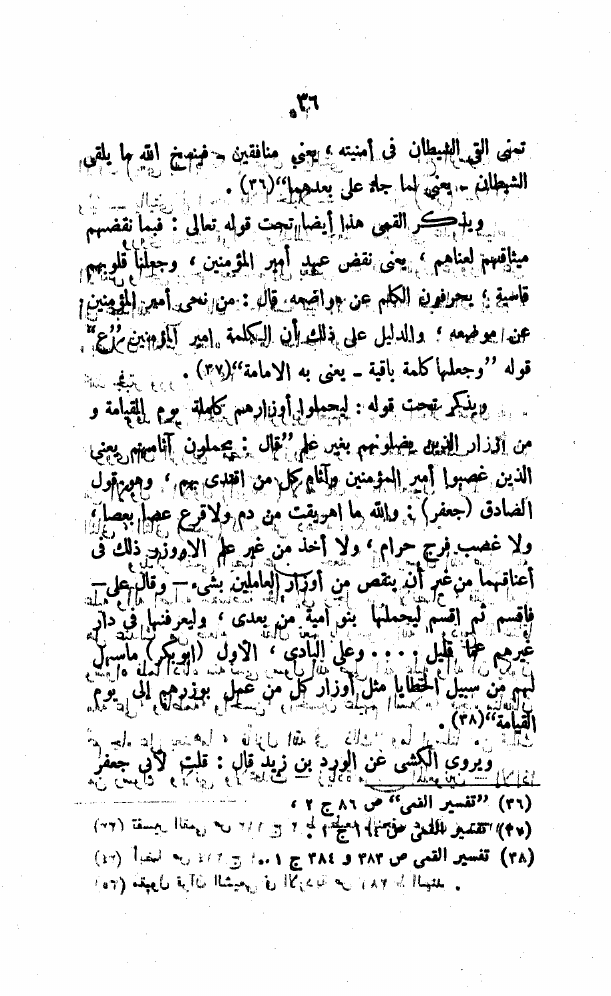 ٣٦
تمنى القى الشيطان فى أمنيته ، يعني منافقين - فينسخ الله ما يلقى
الشيطان - يعني لما جاء على بعدهما" (٣٦) .
ويذكر القمى هذا أيضا تحت قوله تعالى : فبما نقضهم
ميثاقهم لعناهم ، يعنى نقض عهد أمير المؤمنين ، وجعلنا قلوبهم
قاسية ؛ يحرفون الكلم عن مواضعه قال : من نحى أمير المؤمنين
عن موضعه ؛ والدليل على ذلك أن الكلمة امير المؤمنين "ع"
قوله "وجعلها كلمة باقية - يعنى به الامامة" (٣٧) .
ويذكر تحت قوله : ليحملوا أوزارهم كاملة يوم القيامة و
من أوزار الذين يضلونهم بغير علم "قال : يحملون آثامهم يعني
الذين غصبوا أمير المؤمنين وآثام كل من اقتدى بهم ، وهو قول
الصادق (جعفر) : والله ما اهريقت من دم ولا قرع عصا بعصا ،
ولا غصب فرج حرام ، ولا أخذ من غير علم الا ووزر ذلك فى
أعناقهما من غير أن ينقص من أوزار العاملين بشىء - وقال على -
فاقسم ثم اقسم ليحملنها بنو امية من بعدى ، وليعرفنها فى دار
غيرهم عما قليل .... وعلى البادى ، الاول (ابوبكر) ماسهل
لهم من سبيل الخطايا مثل أوزار كل من عمل بوزرهم إلى يوم
القيامة" (٣٨) .
ويروى الكشى عن الورد بن زيد قال : قلت لأبى جعفر
(٣٦) "تفسير القمى" ص ٨٦ ج ٢ ،
(٣٧) تفسير القمى ص ج ١ .
(٣٨) تفسير القمى ص ٣٨٣ و ٣٨٤ ج ١